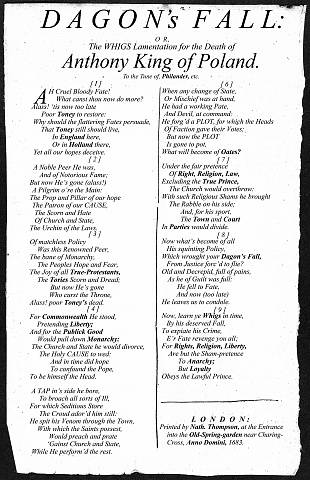 DAGON's FALL:
OR,
The WHIGS Lamentation for the Death of
Anthony King of Poland.
To the Tune of, Philander, etc.
[1]
AH Cruel Bloody Fate!
What canst thou now do more?
Alas! 'tis now too late
Poor TONEY to restore:
Why should the flattering Fates persuade,
That Toney still should live,
In England here,
Or in Holland there,
Yet all our hopes deceive.
[2]
A Noble Peer He was,
And of Notorious Fame;
But now He's gone (alass!)
A Pilgrim o're the Main:
The Prop and Pillar of our hope
The Patron of our CAUSE,
The Scorn and Hate
Of Church and State,
The Urchin of the Laws.
[3]
Of matchless Policy
Was this Renowned Peer,
The bane of Monarchy,
The Peoples Hope and Fear,
The Joy of all True-Protestants,
The Tories Scorn and Dread;
But now He's gone
Who curst the Throne,
Alass! poor Toney's dead.
[4]
For Commonwealth He stood,
Pretending Liberty;
And for the Publick Good
Would pull down Monarchy:
The Church and State he would divorce,
The Holy CAUSE to wed:
And in time did hope
To confound the Pope,
To be himself the Head.
A TAP in's side he bore,
To broach all sorts of Ill,
For which Seditions Store
The Croud ador'd him still:
He spit his Venom through the Town,
With which the Saints possest,
Would preach and prate
'Gainst Church and State,
While He perform'd the rest.
[6]
When any change of State,
Or Mischief was at hand,
He had a working Pate,
And Devil, at command:
He forg'd a PLOT, for which the Heads
Of Faction gave their Votes;
But now the PLOT
Is gone to pot,
What will become of Oates?
[7]
Under the fair pretence
Of Right, Religion, Law,
Excluding the True Prince,
The Church would overthrow:
With such Religious Shams he brought
The Rabble on his side;
And, for his sport,
The Town and Court
In Parties would divide.
[8]
Now what's become of all
His squinting Policy,
Which wrought your Dagon's Fall,
From Justice forc'd to flie?
Old and Decrepid, full of pains,
As he of Guilt was full:
He fell to Fate,
And now (too late)
He leaves us to condole.
[9]
Now, learn ye Whigs in time,
By his deserved Fall,
To expiate his Crime,
E'r Fate revenge you all;
For Rights, Religion, Liberty,
Are but the Sham-pretence
To Anarchy;
But Loyalty
Obeys the Lawful Prince.
LONDON:
Printed by Nath. Thompson, at the Entrance
into the Old-Spring-garden near Charing-
Cross, Anno Domini, 1683.